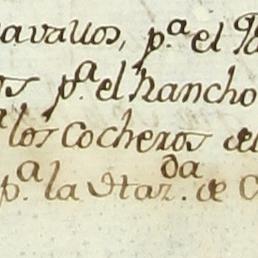 avallos, p.ª el
os p.ª el Rancho
los Cocheros de
p.ª la Htaz.da de C